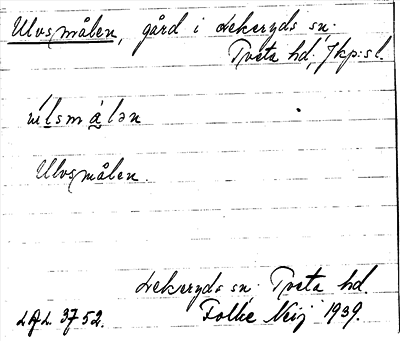 Ulvsmålen, gård i Lekeryds sn.
Tveta hd, Jkp:sl.
Ulvsmålen.
Lekeryds sn. Tveta hd.
LAL 3752. Folke Neij 1939.